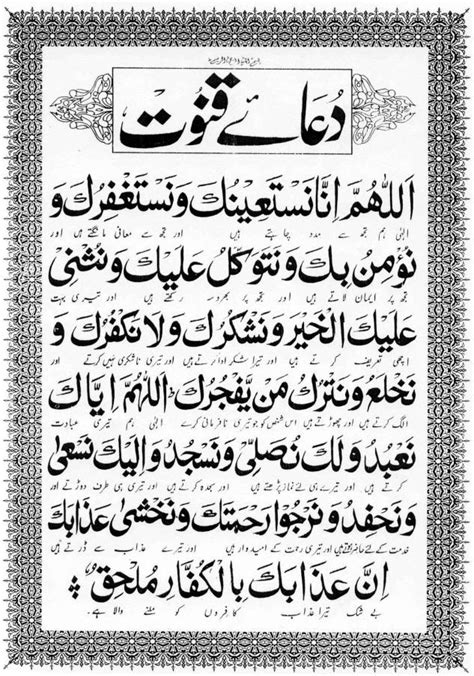 دُعَائے قنُوت
اَللّٰهُمَّ اِنَّا نَسْتَعِينُكَ وَنَسْتَغْفِرُكَ وَ
الہٰی ہم تجھ سے مدد چاہتے ہیں اور تجھ سے معافی مانگتے ہیں اور
نُؤْمِنُ بِكَ وَنَتَوَكَّلُ عَلَيْكَ وَنُثْنِىْ
تجھ پر ایمان لاتے ہیں اور تجھ پر بھروسہ رکھتے ہیں اور تیری بہت
عَلَيْكَ الْخَيْرَ وَنَشْكُرُكَ وَلَا نَكْفُرُكَ وَ
اچھی تعریف کرتے ہیں اور تیرا شکر ادا کرتے ہیں اور تیری ناشکری نہیں کرتے اور
نَخْلَعُ وَنَتْرُكُ مَنْ يَّفْجُرُكَ اَللّٰهُمَّ اِيَّاكَ
الگ کرتے ہیں اور چھوڑتے ہیں اس شخص کو جو تیری نافرمانی کرے الہٰی ہم تیری عبادت
نَعْبُدُ وَلَكَ نُصَلِّىْ وَنَسْجُدُ وَاِلَيْكَ نَسْعٰى
کرتے ہیں اور تیرے ہی لئے نماز پڑھتے ہیں اور سجدہ کرتے ہیں اور تیری ہی طرف دوڑتے اور
وَنَحْفِدُ وَنَرْجُوْا رَحْمَتَكَ وَنَخْشٰى عَذَابَكَ
خدمت کے لئے حاضر ہوتے ہیں اور تیری رحمت کے امیدوار ہیں اور تیرے عذاب سے ڈرتے ہیں
اِنَّ عَذَابَكَ بِالْكُفَّارِ مُلْحِقٌ
بے شک تیرا عذاب کافروں کو ملنے والا ہے۔